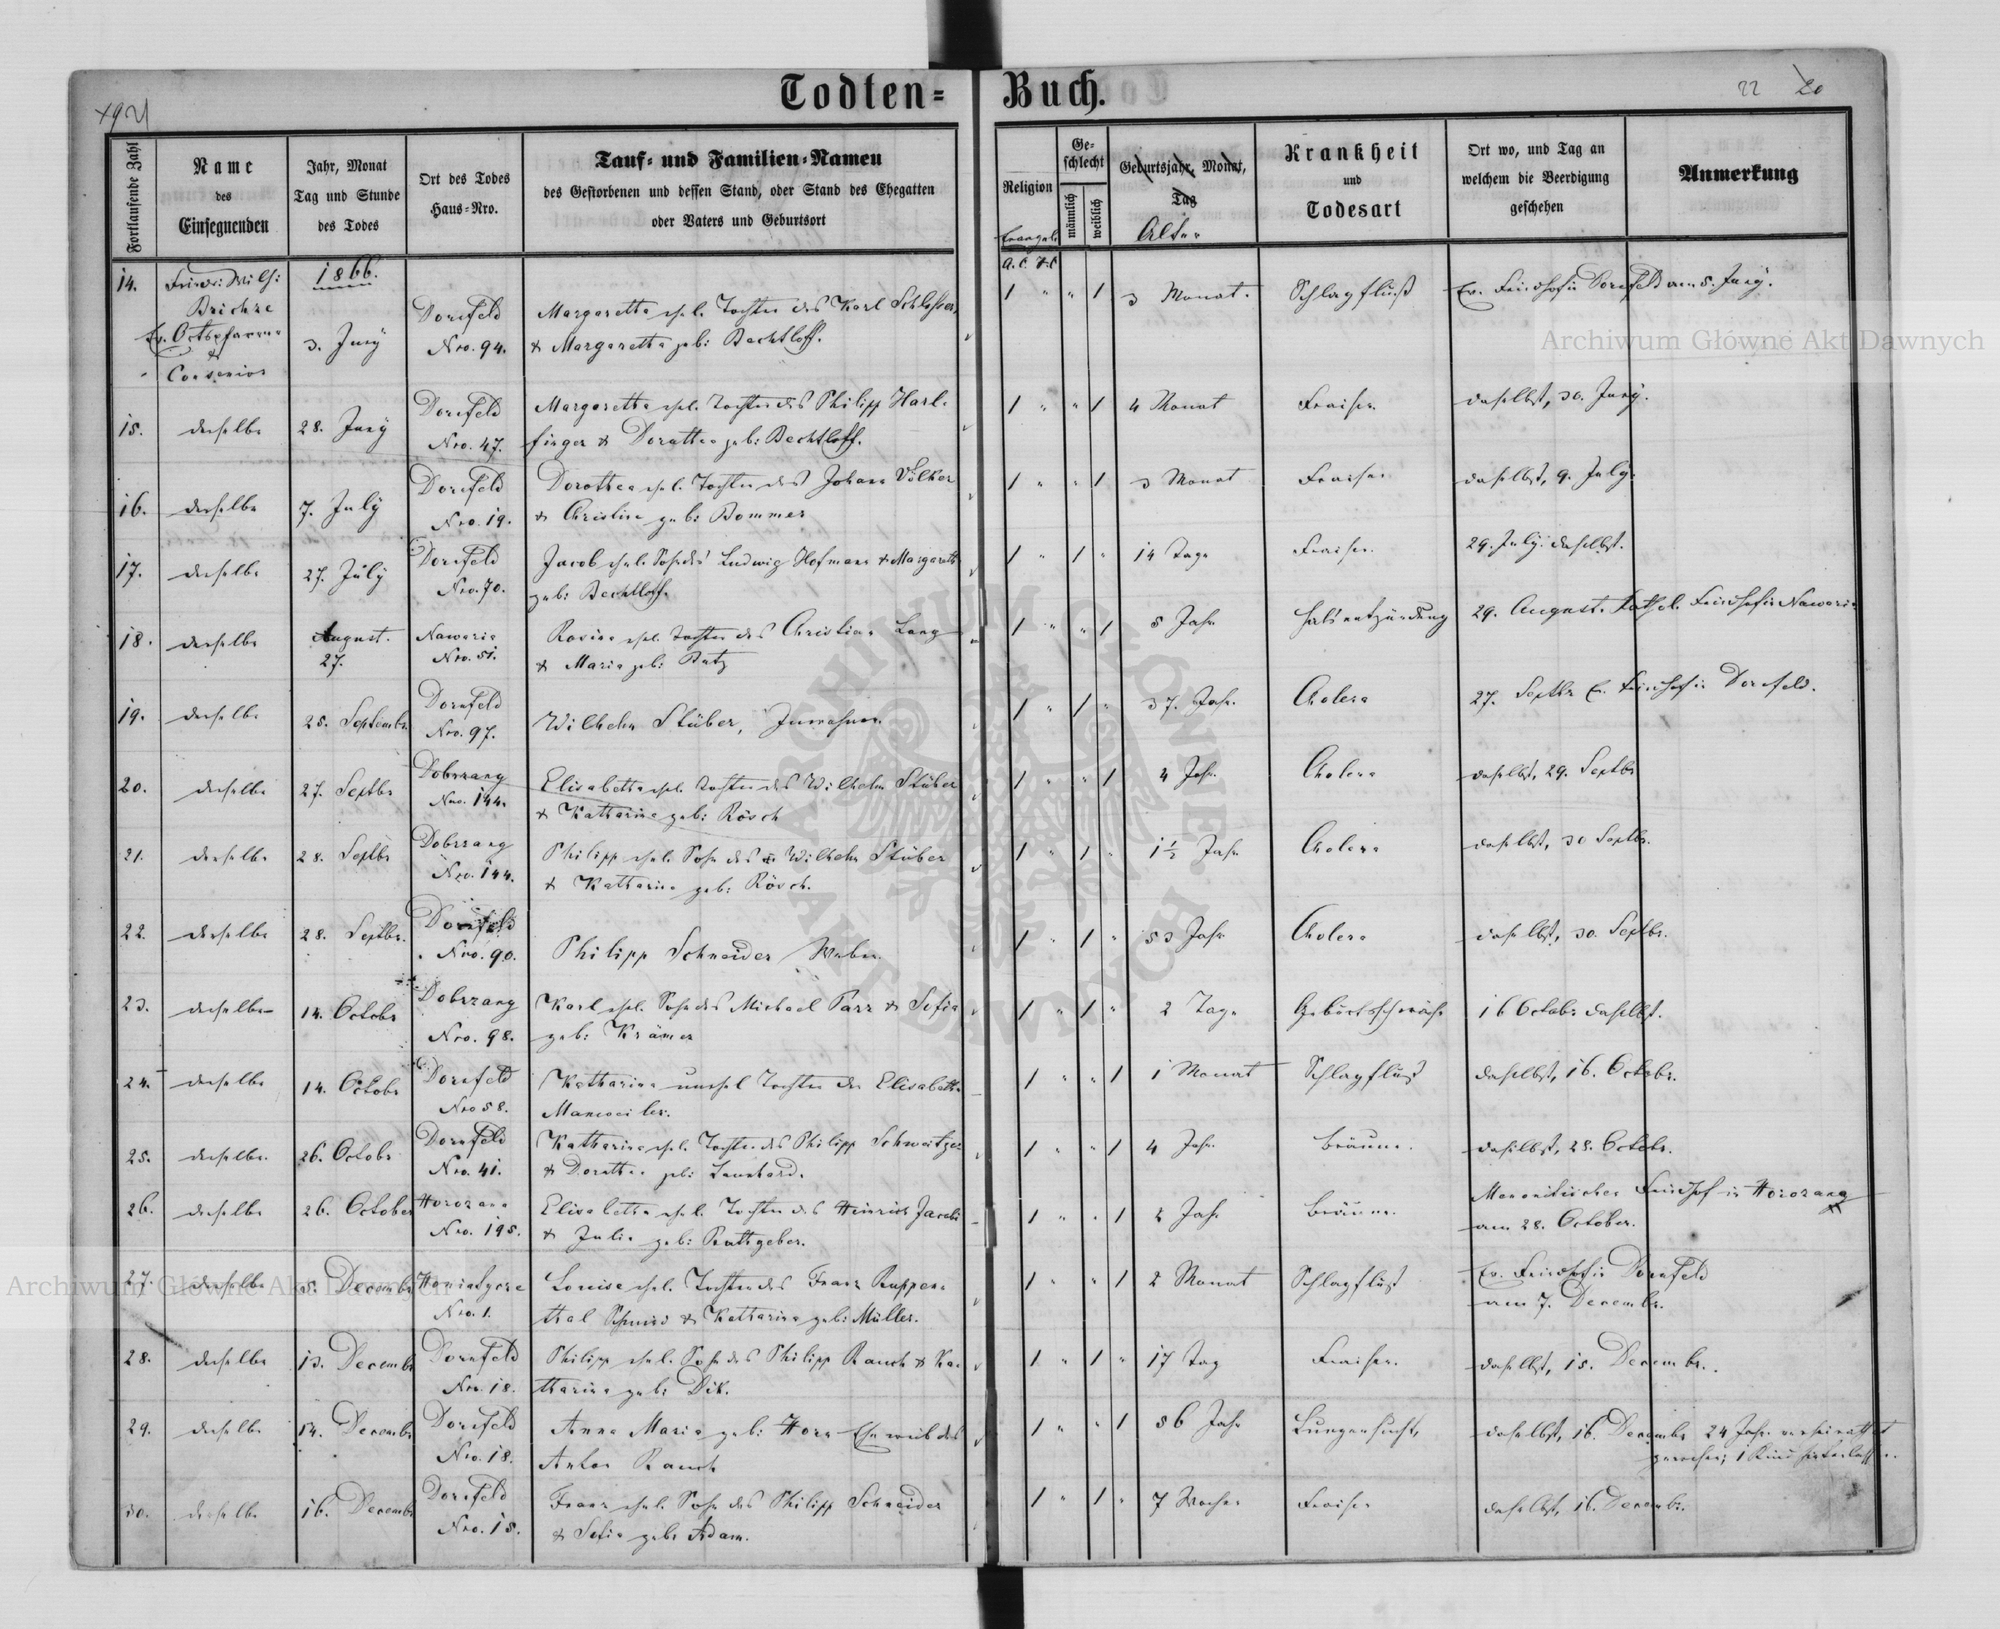 Todten-Buch.
492
22 20
Fortlaufende Zahl
Name des Einsegnenden
Jahr, Monat Tag und Stunde des Todes
Ort des Todes Haus-Nro.
Tauf- und Familien-Namen
des Gestorbenen und dessen Stand, oder Stand des Ehegatten
oder Vaters und Geburtsort
Religion
Evangel.
A. C. H. C.
Geschlecht
männlich
weiblich
Geburtsjahr, Monat, Tag
Alter
Krankheit und Todesart
Ort wo, und Tag an welchem die Beerdigung geschehen
Anmerkung
1866.
14. Friedr: Wilh: 3. Juny Dornfeld Margaretha ehel. Tochter des Karl Schlosser 1 " " 1 3 Monat. Schlagfluß Ev. Friedhof in Dornfeld am 5. Juny.
Ev. Ortspfarrer & Consenior Nro. 94. & Margaretha geb: Bechtloff.
15. derselbe 28. Juny Dornfeld Margaretha ehel. Tochter des Philipp Harl- 1 " " 1 4 Monat Fraisen daselbst, 30. Juny.
Nro. 47. finger & Dorothea geb: Bechtloff.
16. derselbe 7. July Dornfeld Dorothea ehel. Tochter des Johann Völker 1 " " 1 3 Monat Fraisen daselbst, 9. July.
Nro. 19. & Christine geb: Bommer
17. derselbe 27. July Dornfeld Jacob ehel. Sohn des Ludwig Hofmann & Margareth 1 " 1 " 14 Tage Fraisen. 29. July daselbst.
Nro. 70. geb: Bechtloff.
18. derselbe August. Nawaria Rosina ehel. Tochter des Christian Lang 1 " " 1 5 Jahr Halsentzündung 29. August. kathol. Friedhof in Nawaria
27. Nro. 51. & Maria geb: Butz
19. derselbe 25. Septembr. Dornfeld Wilhelm Stüber, Inwohner 1 " 1 " 37. Jahr. Cholera 27. Septbr Ev. Friedhof in Dornfeld.
Nro. 97.
20. derselbe 27. Septbr Dobrzany Elisabetha ehel. Tochter des Wilhelm Stüber 1 " " 1 4 Jahr. Cholera daselbst, 29. Septbr
Nro. 144. & Katharina geb: Rösch
21. derselbe 28. Septbr Dobrzany Philipp ehel. Sohn des Wilhelm Stüber 1 " 1 " 1 1/2 Jahr Cholera daselbst, 30 Septbr.
Nro. 144. & Katharina geb: Rösch.
22. derselbe 28. Septbr. Dornfeld Philipp Schneider Weber 1 " 1 " 53 Jahr. Cholera daselbst, 30. Septbr.
Nro. 90.
23. derselbe 14. Octobr Dobrzany Karl ehel. Sohn des Michael Parr & Sofia 1 " 1 " 2 Tage Geburtsschwäche 16 Octobr daselbst.
Nro. 98. geb: Krämer
24. derselbe 14. Octobr Dornfeld Katharina unehel Tochter der Elisabeth 1 " " 1 1 Monat Schlagfluß daselbst, 16. Octobr.
Nro 58. Manweiler.
25. derselbe. 26. Octobr Dornfeld Katharina ehel. Tochter des Philipp Schweitzer 1 " " 1 4 Jahr. Bräune. daselbst, 28. Octobr.
Nro. 41. & Dorothea geb: Leonhard.
26. derselbe 26. October Horozana Elisabetha ehel. Tochter des Heinrich Jacobi 1 " . 1 Jahr Bräune. Menonitischer Friedhof in Horozana
Nro. 195. & Julia geb: Rathgeber. am 28. October.
27. derselbe 5. Decembr Louise ehel. Tochter des Franz Ruppen- 1 " " 1 2 Monat Schlagfluß Ev. Friedhof in Dornfeld
Nro. 1. thal Schmied & Katharina geb: Müller. am 7. Decembr.
28. derselbe 13. Decembr Dornfeld Philipp ehel. Sohn des Philipp Rauch & Ka- 1 " 1 " 17 Tag Fraisen. daselbst, 15. Decembr.
Nro. 18. tharina geb: Dik.
29. derselbe 14. Decembr Dornfeld Anna Maria geb: Horn Eheweib des 1 " " 1 56 Jahr Lungensucht, daselbst, 16. Decembr 24 Jahr verheirathet
Nro. 18. Anton Rauch gewesen; 1 Kind hinterlassen.
30. derselbe 16. Decembr Dornfeld Franz ehel. Sohn des Philipp Schneider 1 " 1 " 7 Wochen Fraisen daselbst, 16. Decembr.
Nro. 15. & Sofia geb: Adam.
Archiwum Główne Akt Dawnych
Archiwum Główne Akt Dawnych
ARCHIWUM GŁÓWNE AKT DAWNYCH